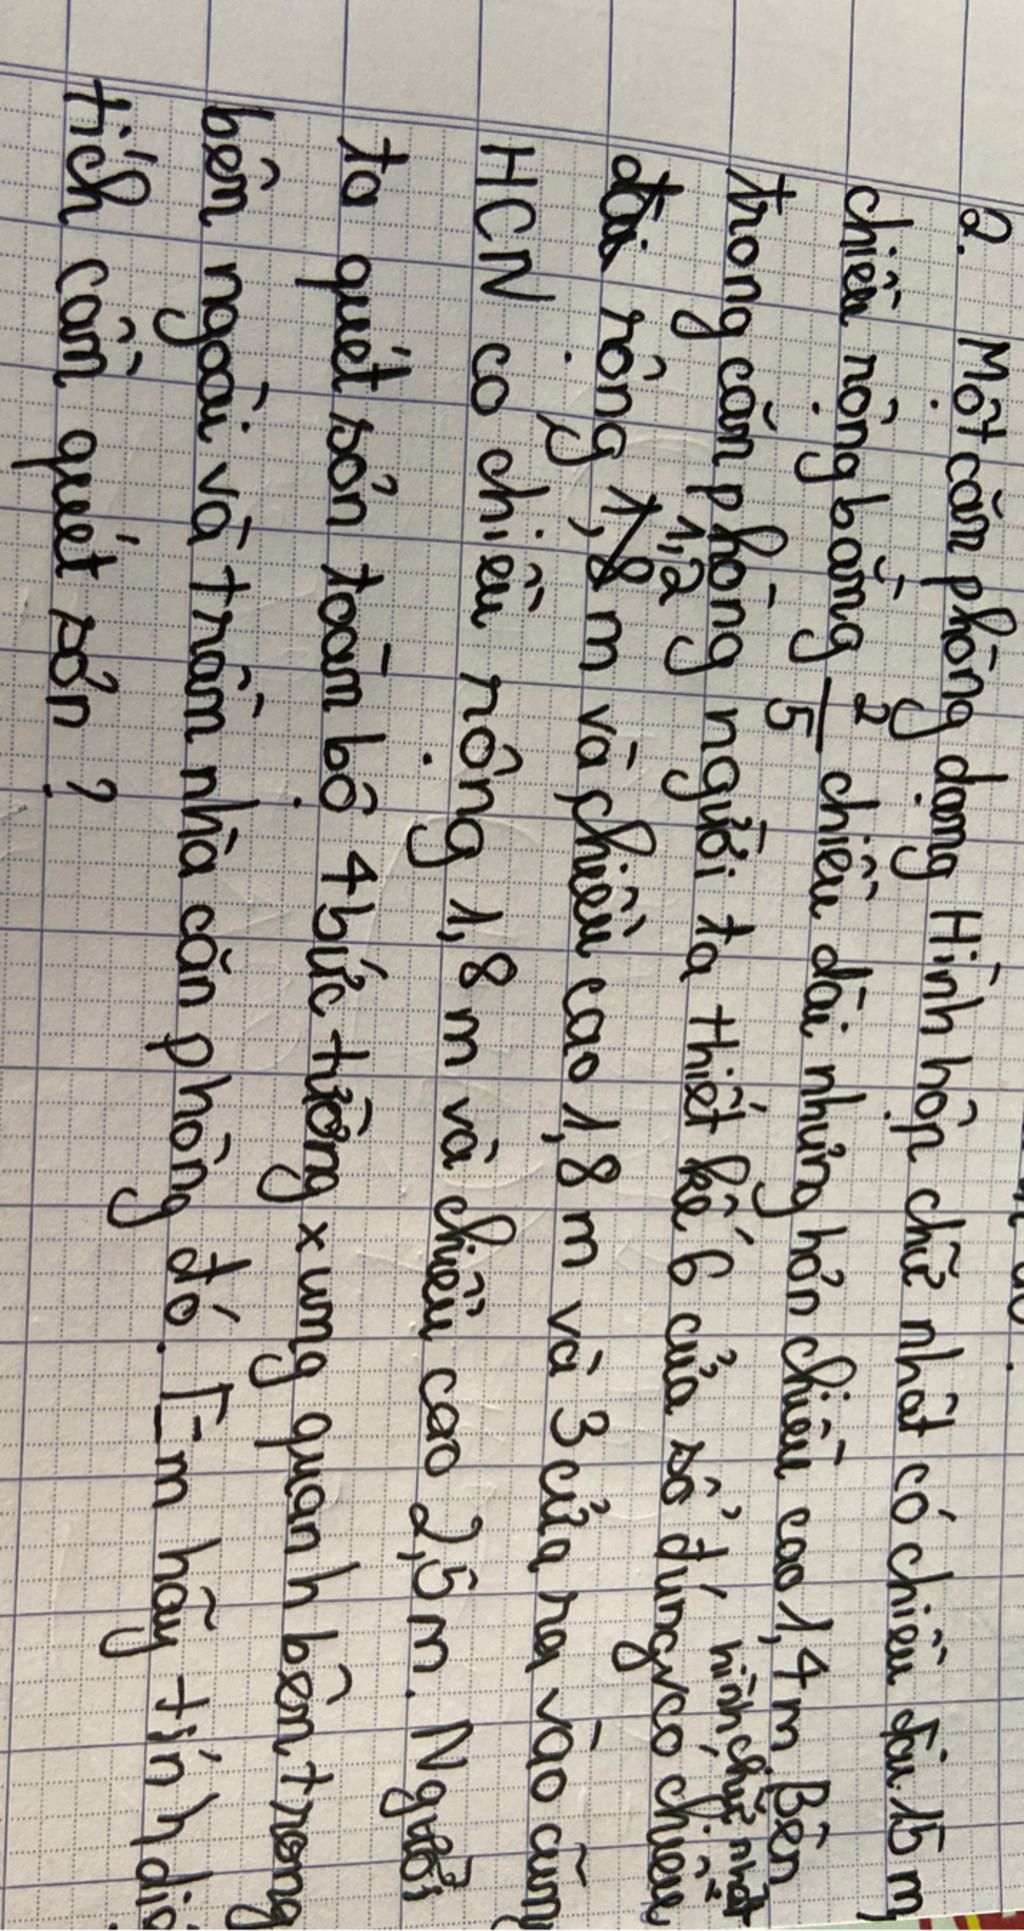 2. Một căn phòng dạng Hình hộp chữ nhật có chiều dài 15 m
chiều rộng bằng 2/5 chiều dài nhưng hơn chiều cao 1,4 m. Bên
trong căn phòng người ta thiết kế 6 cửa sổ đứng hình chữ nhật có chiều
rộng 1,2 m và chiều cao 1,8 m và 3 cửa ra vào cũng
HCN có chiều rộng 1,8 m và chiều cao 2,5 m. Người
ta quét sơn toàn bộ 4 bức tường xung quanh bên trong
bên ngoài và trần nhà căn phòng đó. Em hãy tính diện
tích cần quét sơn ?